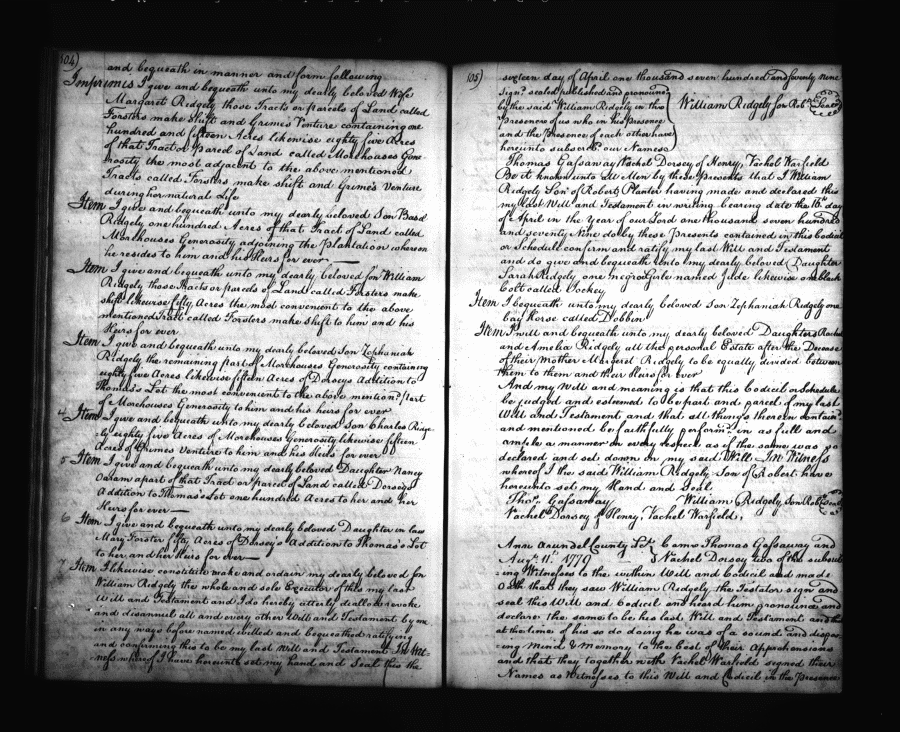 104)
and bequeath in manner and form following
Imprimis I give and bequeath unto my dearly beloved Wife
Margaret Ridgely those Tracts or parcels of Land called
Forsters make shift and Grimes Venture containing one
hundred and fifteen Acres likewise eighty five Acres
of that Tract or Parcel of Land called Morehouses Gene-
rosity the most adjacent to the above mentioned
Tracts called Forsters make shift and Grimes Venture
during her natural Life
Item I give and bequeath unto my dearly beloved Son
Ridgely one hundred Acres of that Tract of Land called
Morehouses Generosity adjoining the Plantation whereon
he resides to him and his Heirs for ever
Item I give and bequeath unto my dearly beloved Son William
Ridgely those Tracts or parcels of Land called Forsters make
shift likewise fifty Acres the most convenient to the above
mentioned Tract called Forsters make shift to him and his
Heirs for ever
Item I give and bequeath unto my dearly beloved Son Zephaniah
Ridgely the remaining part of Morehouses Generosity containing
eighty five Acres likewise fifteen Acres of Dorseys Addition to
Thomas's Lot the most convenient to the above mention'd part
of Morehouses Generosity to him and his heirs for ever
4 Item I give and bequeath unto my dearly beloved Son Charles Ridge
ly eighty five Acres of Morehouses generosity likewise fifteen
Acres of Grimes Venture to him and his Heirs for ever
5 Item I give and bequeath unto my dearly beloved Daughter Nancy
apart of that Tract or parcel of Land called Dorseys
Addition to Thomas's Lot one hundred Acres to her and her
Heirs for ever
6 Item I give and bequeath unto my dearly beloved Daughter in law
Mary Forster fifty Acres of Dorsey's Addition to Thomas's Lot
to her and her Heirs for ever
7 Item I likewise constitute make and ordain my dearly beloved Son
William Ridgely the whole and sole Executor of this my last
Will and Testament and I do hereby utterly disallow revoke
and disannul all and every other Will and Testament by me
in any ways before named willed and bequeathed ratifying
and confirming this to be my last Will and Testament In Wit-
ness whereof I have hereunto set my hand and Seal this the
105)
sixteen day of April one thousand seven hundred and seventy nine
Sign'd sealed published and pronounc'd
by the said William Ridgely in the
Presence of us who in his Presence
and the Presence of each other have
hereunto subscrib'd our Names
William Ridgely son Rob't Seal
Thomas Gassaway Vachel Dorsey of Henry, Vachel Warfield
Be it known unto All Men by these Presents that I William
Ridgely Son of Robert Planter having made and declared this
my last Will and Testament in writing bearing date the 16th day
of April in the Year of our Lord one thousand seven hundred
and seventy Nine do by these Presents contained in this Codicil
or Schedule confirm and ratify my last Will and Testament
and do give and bequeath unto my dearly beloved Daughter
Sarah Ridgely one negro Girle named Jude likewise one black
Colt called Jockey
Item I bequeath unto my dearly beloved Son Zephaniah Ridgely one
bay Horse called Dobbin
Item I will and bequeath unto my dearly beloved Daughters Rachel
and Amelia Ridgely all the personal Estate after the Decease
of their Mother Margaret Ridgely to be equally divided between
them to them and their Heirs for ever
And my Will and meaning is that this Codicil or Schedule
be judged and esteemed to be part and parcel of my last
Will and Testament and that all things therein contain'd
and mentioned be faithfully perform'd in as full and
ample a manner in every respect as if the same was so
declared and set down in my said Will In Witness
whereof I the said William Ridgely Son of Robert have
hereunto set my Hand and Seal
Tho's Gassaway William Ridgely Son Rob't Seal
Vachel Dorsey of Henry, Vachel Warfield,
Ann Arundel County Sct. Came Thomas Gassaway and
Aug't 11th 1779 Vachel Dorsey two of the subscri-
bing Witnesses to the within Will and Codicil and made
Oath that they saw William Ridgely the Testator sign and
seal this Will and Codicil and heard him pronounce and
declare the same to be his last Will and Testament and that
at the time of his so doing he was of a sound and dispos
ing Mind & Memory to the best of their Apprehensions
and that they together with Vachel Warfield signed their
Names as Witnesses to this Will and Codicil in the Presence